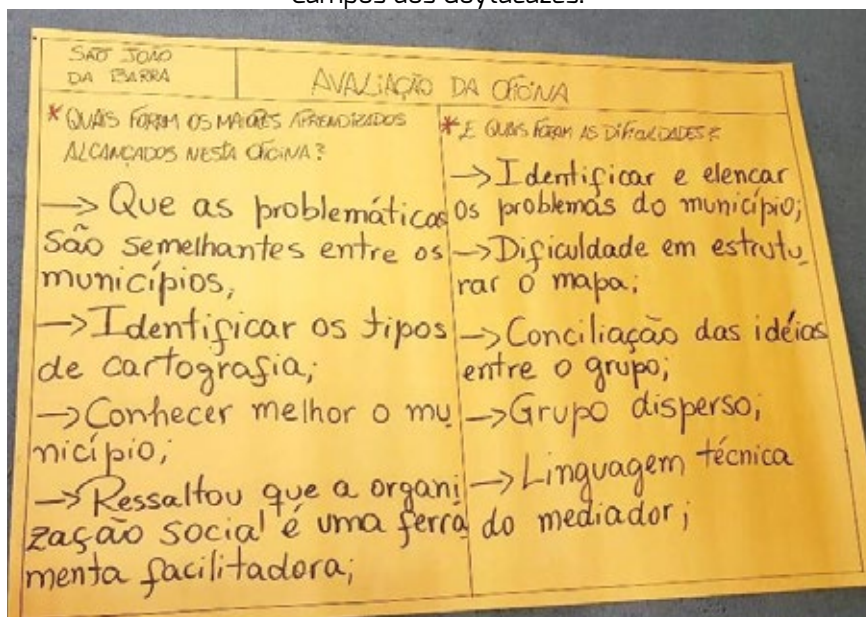 Campos dos Goytacazes.
SÃO JOÃO
DA BARRA
AVALIAÇÃO DA OFICINA
* QUAIS FORAM OS MAIORES APRENDIZADOS
ALCANÇADOS NESTA OFICINA?
→ Que as problemáticas
são semelhantes entre os
municípios;
→ Identificar os tipos
de cartografia;
→ Conhecer melhor o mu
nicípio;
→ Ressaltou que a organi
zação social é uma ferra
menta facilitadora;
* E QUAIS FORAM AS DIFICULDADES?
→ Identificar e elencar
os problemas do município;
→ Dificuldade em estrutu
rar o mapa;
→ Conciliação das idéias
entre o grupo;
→ Grupo disperso;
→ Linguagem técnica
do mediador;